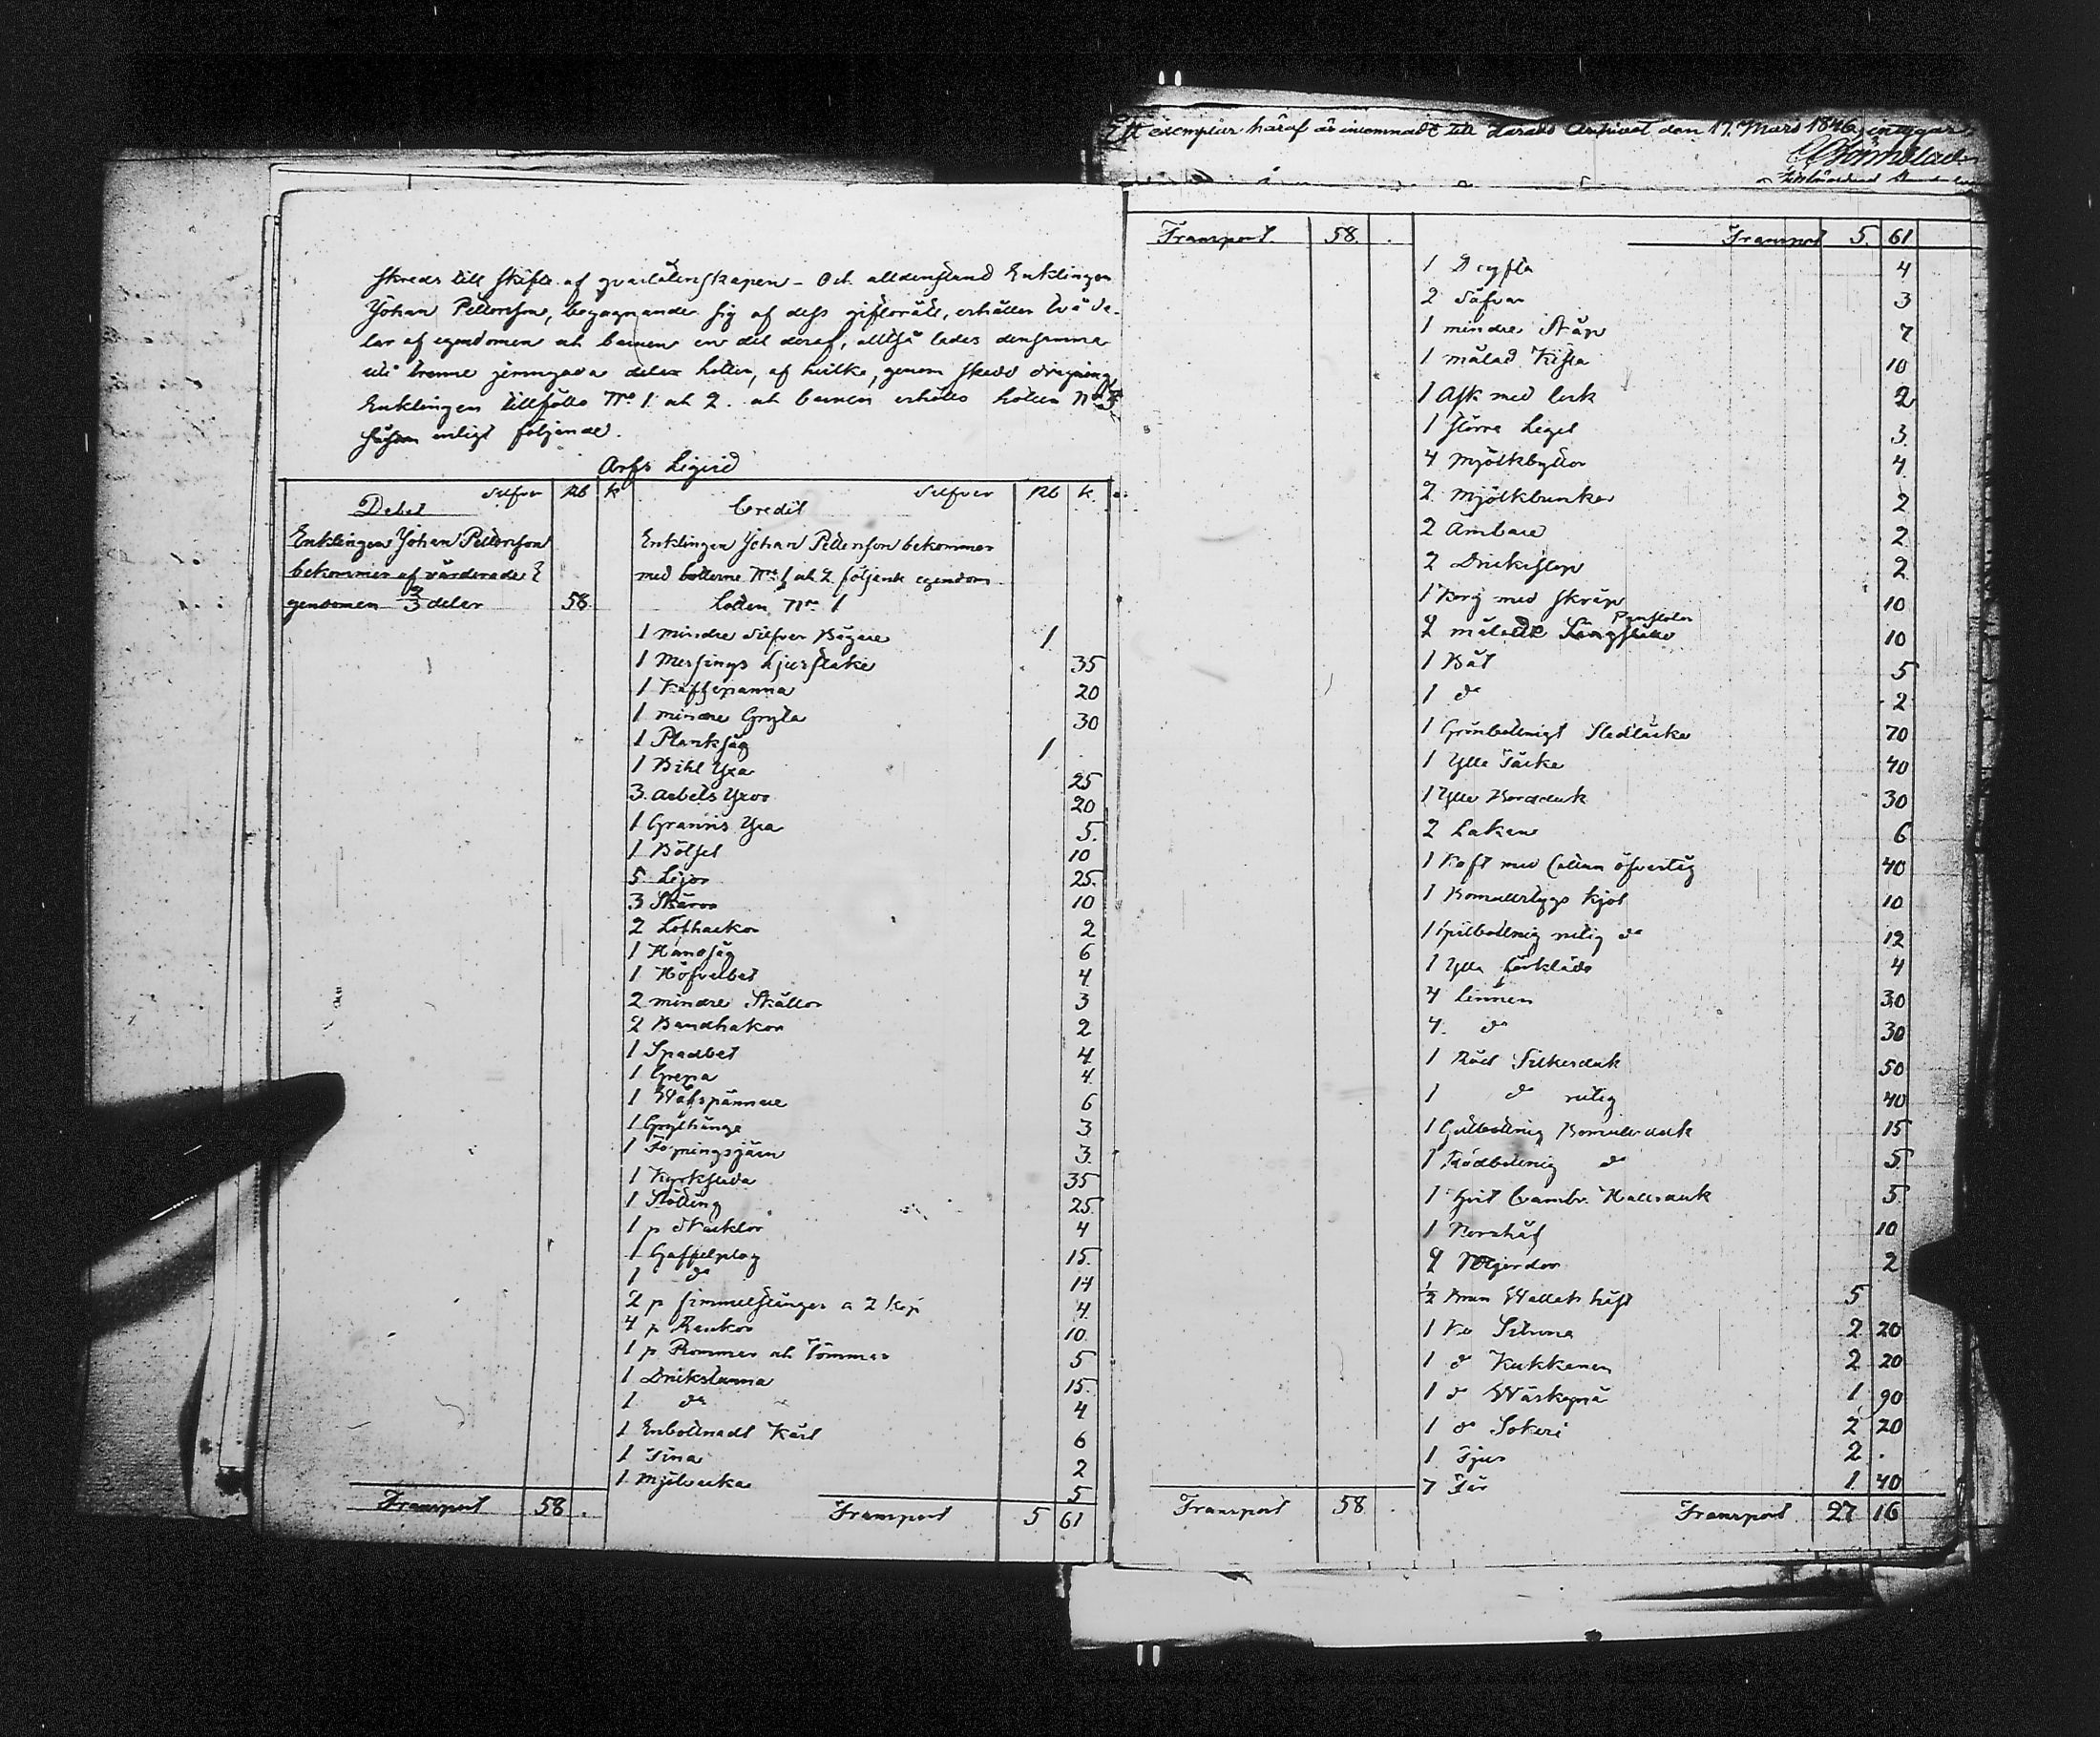 skreds till skifte af qvarlåtenskapen - Och alldenstund Enklingen
Johan Pettersson, begagnande sig af dess giftorätt, erhåller två de-
lar af egendomen och barnen en del deraf, alltså lades densamma
uti trenne jemngoda delar lotter, af hvilka, genom skedd dragning
Enklingen tillföllo No 1 och 2. och barnen erhöllo lotten No 3
såsom enligt följande.
Arfs Liqvid
Debet Silfver Rb k Credit Silfver Rb k.
Enklingen Johan Pettersson
bekommer af värderade E
gendomen 2/3 delar 58.
Enklingen Johan Pettersson bekommer
med lotterne No 1 och 2 följande egendom
Lotten No 1
1 mindre Silfver Bägare 1
1 Messings Ljusstake 35
1 Kaffepanna 20
1 mindre Gryta 30
1 Planksåg 1
1 Bihl Yxa 25
3 Arbets Yxor 20
1 Yxa 5.
1 Bötsel 10
5 Lijor 25.
3 Skäror 10
2 Löfhackor 2
1 Handsåg 6
1 Höfvelbet 4
2 mindre Skällor 3
2 Bandhakor 2
1 Spadbet 4
1 Grepa 4
1 Wäfspännare 6
1 Grythänge 3
1 3.
1 Kyrksläda 35
1 Stötting 25.
1 p Skacklor 4
1 Gaffelplog 15.
1 do 14
2 p Simmelstänger a 2 kop 4
4 p Rankor 10
1 p Rommor och Tömmar 5
1 Drickstunna 15.
1 do 4
1 Enbottnadt Kärl 6
1 Tina 2
1 5
Transport 58. Transport 5 61
Ett exemplar häraf är inlemnadt till Härads Arkivet den 17 Mars 1846, intygar

Transport. 58. Transport 5. 61
1 Dryfta 4
2 Såfvar 3
1 mindre Skåp 7
1 målad Kista 10
1 Ask med lock 2
1 större Legel 3.
4 Mjölkbyttor 4.
2 Mjölkbunkar 2
2 Ambare 2
2 Dricksstop 2
1 Korg med skråp 10
2 målade Pinstolar 10
1 Båt 5
1 do 2
1 Grönbottnigt Slädtäcke 70
1 Ylle Täcke 40
1 Ylle Bordduk 30
2 Lakan 6
1 Koft med Cattun öfvertyg 40
1 Bomullstygs kjol 10
1 Gulbottnig rutig do 12
1 Ylle förkläde 4
4 Linnen 30
4. do 30
1 Röd Silkesduk 50
1 do rutig 40
1 Gulbottnig Bomulls duk 15
1 Rödbottnig do 5
1 Hvit Cambr. Halsduk 5
1 10
4 2
1/2 Brun Wallak häst 5
1 Ko 2 20
1 do Kukkanen 2 20
1 do 1 90
1 do Sokeri 2 20
1 Tjur 2.
7 Får 1 40
Transport 58 Transport. 27 16